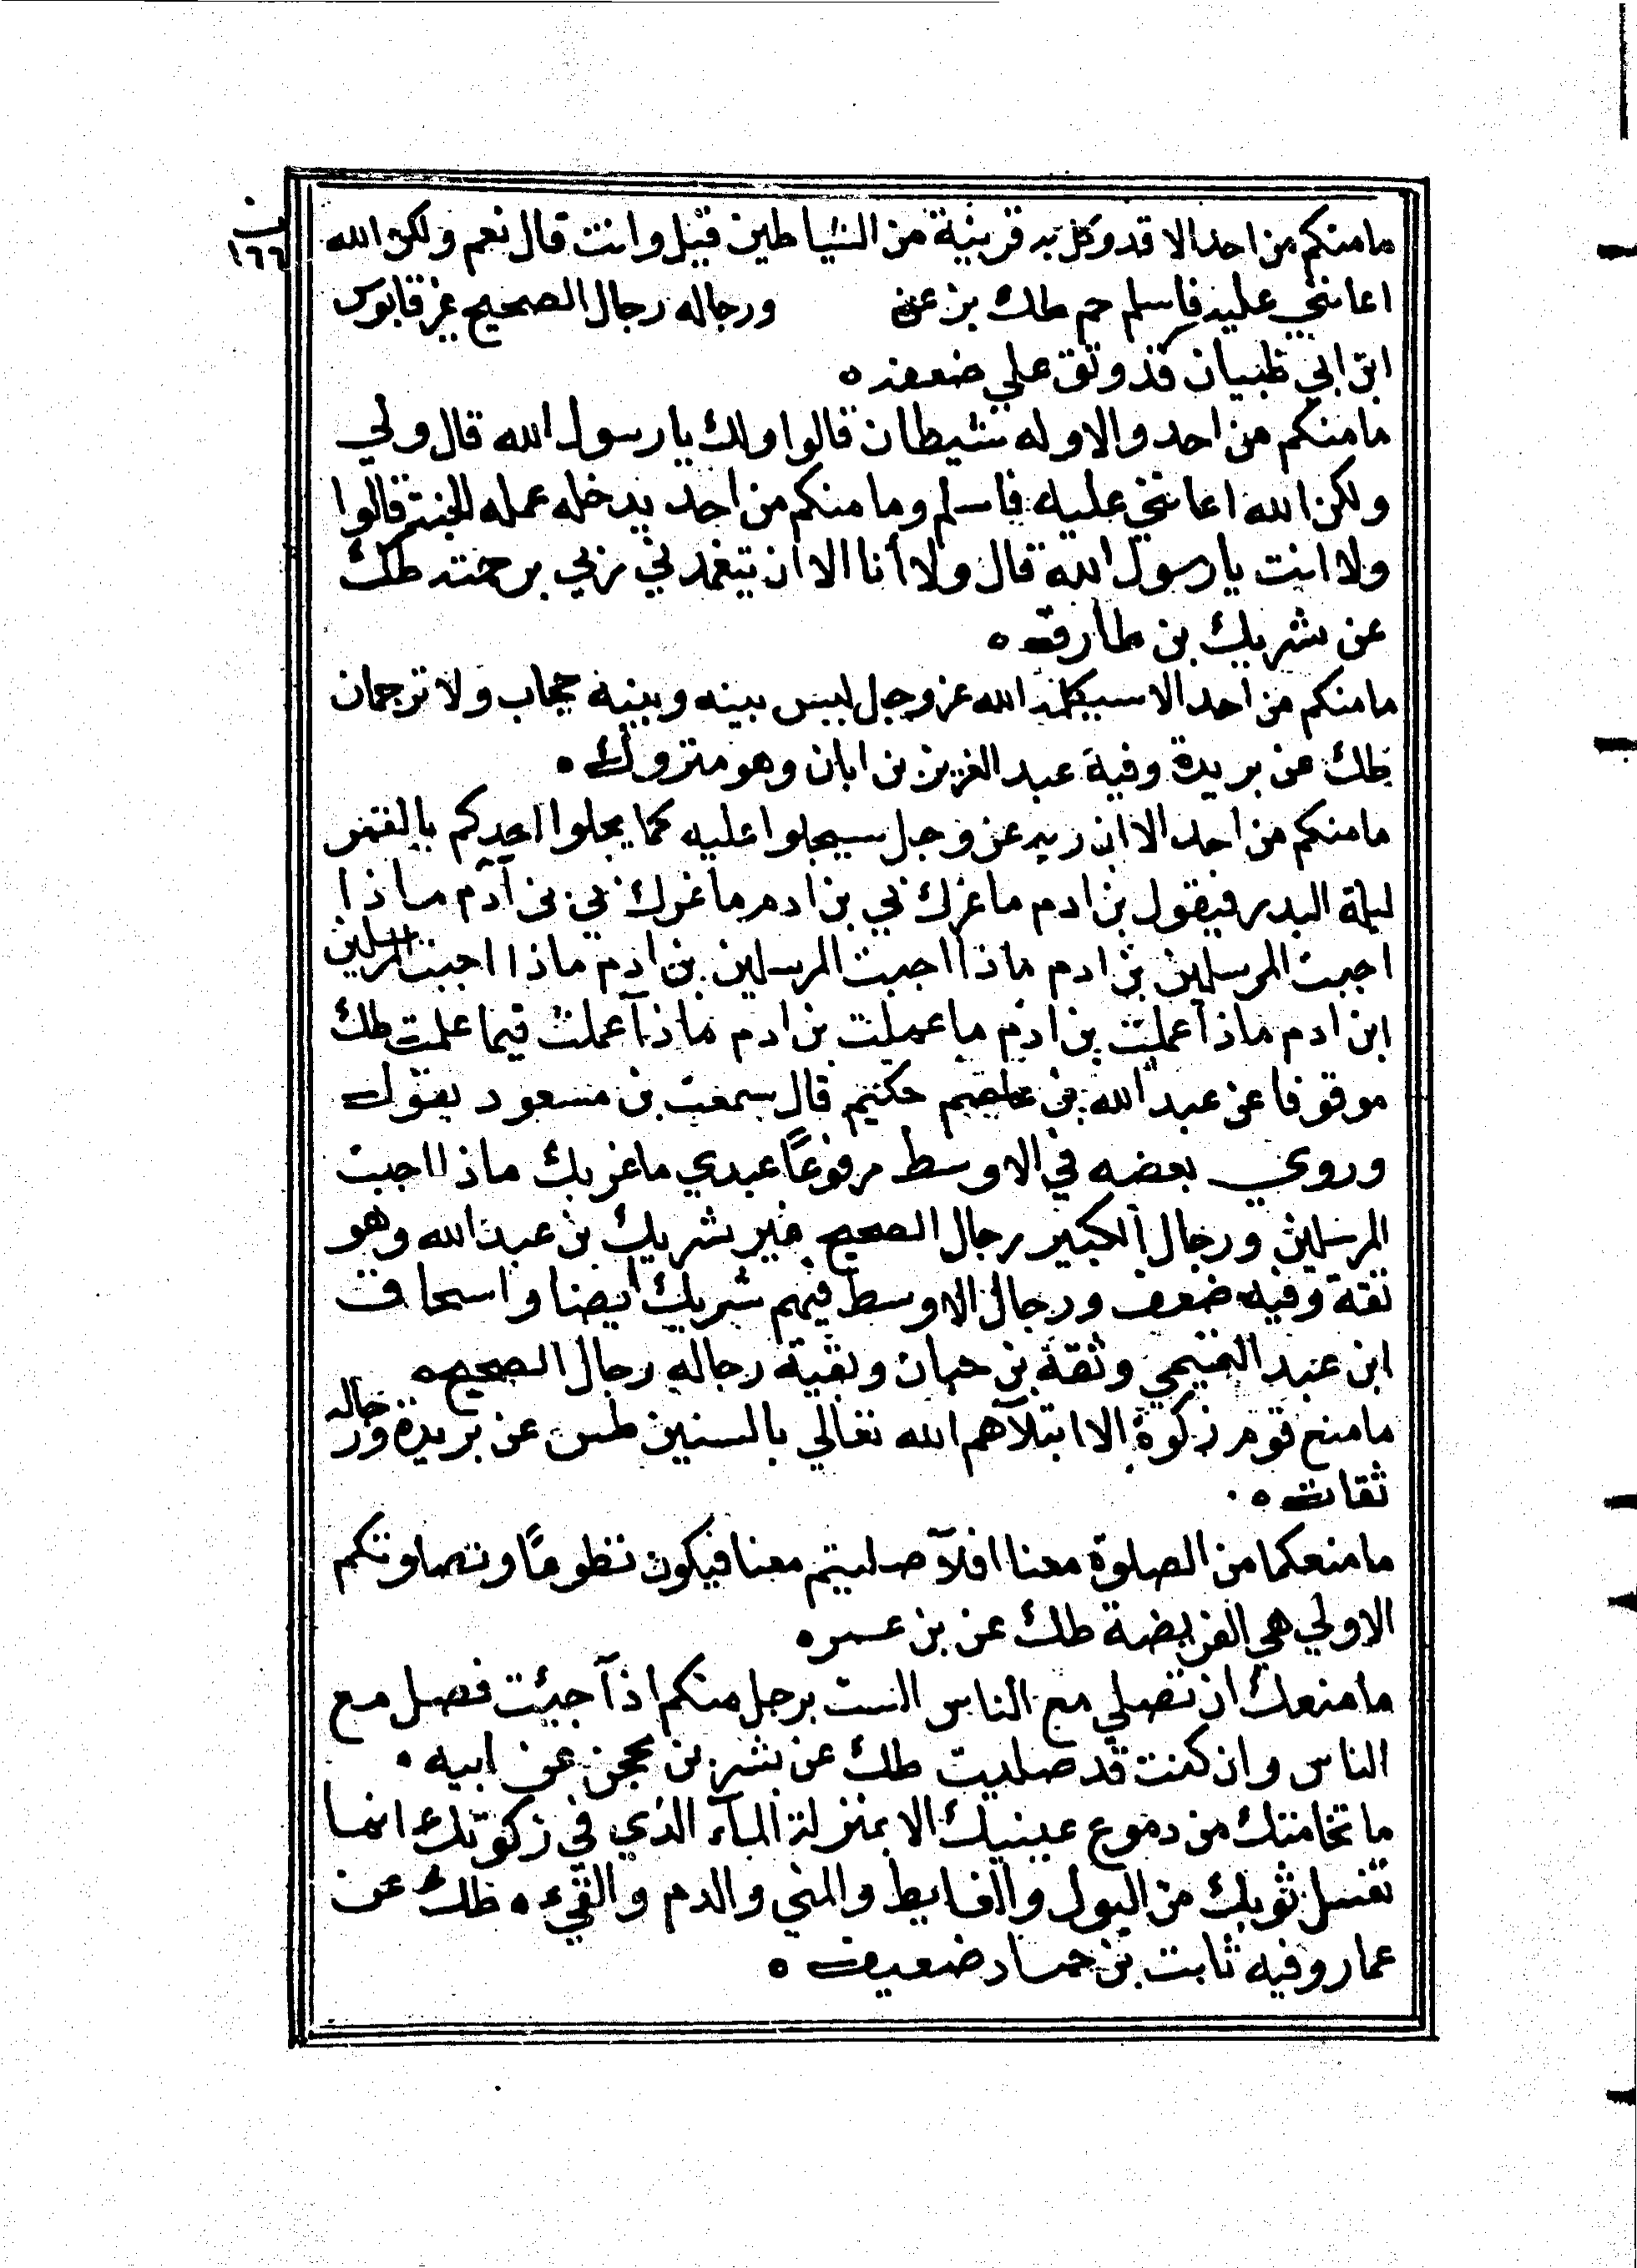 ما منكم من احد الا قد وكل به قرينة من الشياطين قيل وانت قال نعم ولكن الله
١٦٦
اعانني عليه فاسلم حم طك بز عن ورجاله رجال الصحيح غير قابوس
ابن ابي ظبيان قد وثق علي ضعفه ه
ما منكم من احد والا وله شيطان قالوا ولك يا رسول الله قال ولي
ولكن الله اعانني عليه فاسلم وما منكم من احد يدخله عمله الجنة قالوا
ولا انت يا رسول الله قال ولا أنا الا ان يتغمدني ربي برحمته طك
عن شريك بن طارق ه
ما منكم من احد الا سيكلمه الله عز وجل ليس بينه وبينه حجاب ولا ترجمان
طك عن بريدة وفيه عبد العزيز بن ابان وهو متروك ه
ما منكم من احد الا ان ربه عز وجل سيجلوا عليه كما يجلوا احدكم بالقمر
ليلة البدر فيقول بن ادم ما غرك بي بن ادم ما غرك بي بن آدم ماذا
اجبت المرسلين بن ادم ماذا اجبت المرسلين بن ادم ماذا اجبت المرسلين
ابن ادم ماذا عملت بن ادم ما عملت بن ادم ماذا عملت فيما علمت طك
موقوفا عن عبد الله بن حكيم قال سمعت بن مسعود يقول
وروي بعضه في الاوسط مرفوعًا عبدي ما غر بك ماذا اجبت
المرسلين ورجال الكبير رجال الصحيح غير شريك بن عبد الله وهو
ثقة وفيه ضعف ورجال الاوسط فيهم شريك ايضا واسحاق
ابن عبد التميمي وثقة بن حبان وبقية رجاله رجال الصحيح ه
ما منع قوم زكوة الا ابتلاهم الله تعالي بالسنين طس عن بريدة ورجاله
ثقات ه
ما منعكما من الصلوة معنا افلا صليتم معنا فيكون تطوعًا وصلوتكم
الاولي هي الفريضة طك عن بن عمر ه
ما منعك ان تصلي مع الناس الست برجل منكم اذا جيئت فصل مع
الناس وان كنت قد صليت طك عن بشر بن محجن عن ابيه ه
ما نخامتك من دموع عينيك الا بمنزلة الماء الذي في زكوتك انما
تغسل ثوبك من البول والغايط والمني والدم والقيء ه طك عن
عمار وفيه ثابت بن حماد ضعيف ه